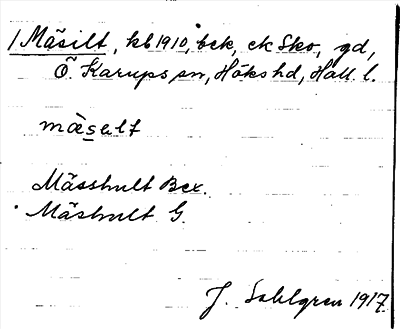 / Mäsilt, kb 1910, bck, ek Sko, gd,
Ö Karups sn, Höks hd, Hall. l.
mæ̀salt
Mässhult Bex.
Mäshult G.
J. Sahlgren 1917.